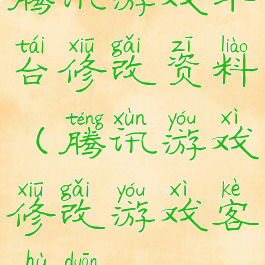 腾讯游戏平
tái xiū gǎi zī liào
台修改资料
téng xùn yóu xì
（腾讯游戏
xiū gǎi yóu xì kè
修改游戏客
hù duān